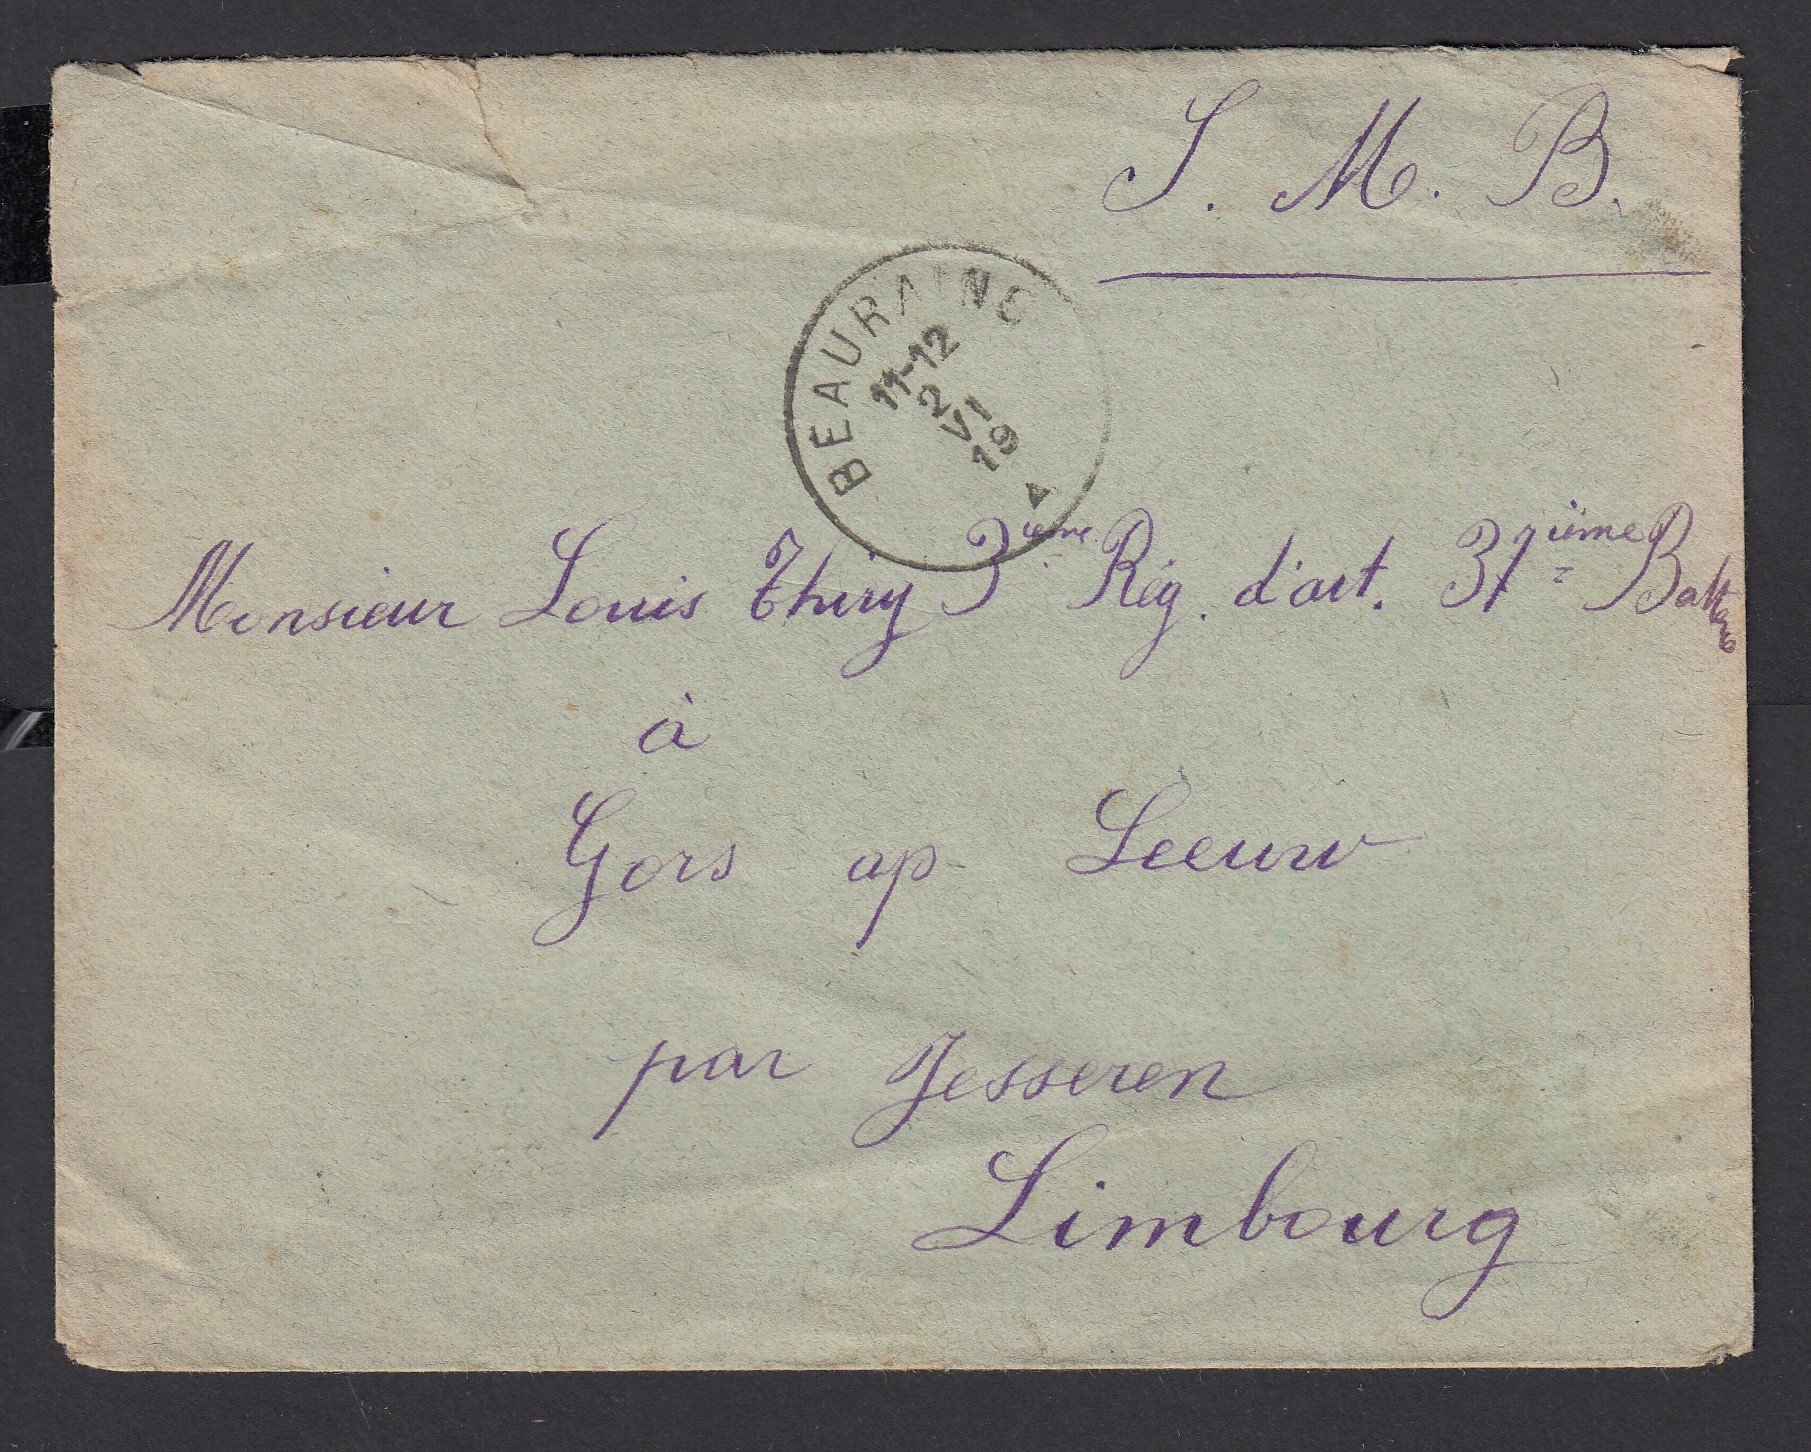 S. M. B.
BEAURAING
11-12
2
VI
19
Monsieur Louis Thiry 3ième Rég. d'art. 37ième Batterie
à
Gors op Leeuw
par Jesseren
Limbourg